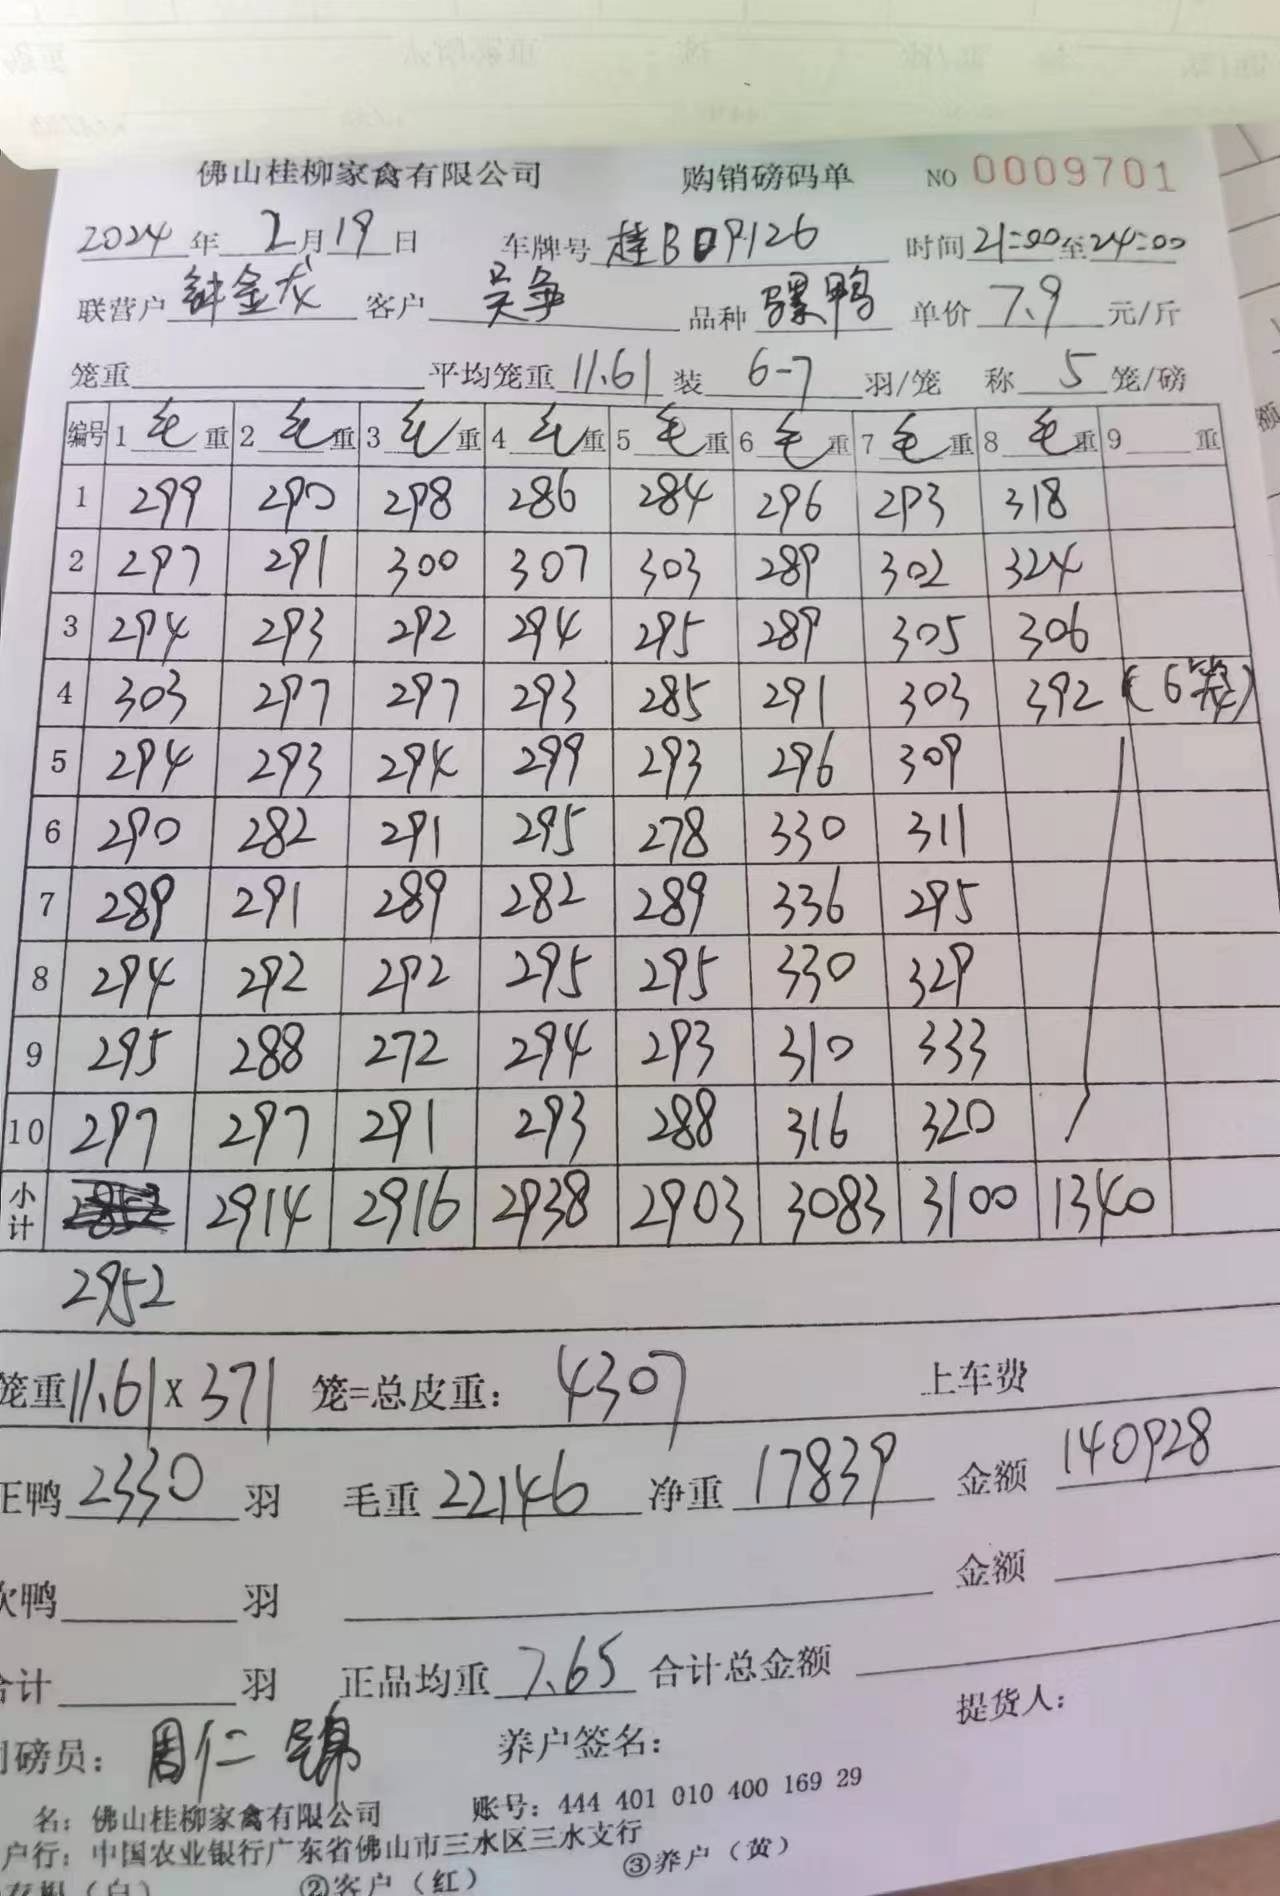 佛山桂柳家禽有限公司 购销磅码单 NO 0009701
2024年2月19日 车牌号 桂B09126 时间21:00至24:00
联营户 钟金龙 客户 吴争 品种 骡鸭 单价 7.9 元/斤
笼重 平均笼重 11.61 装 6-7 羽/笼 称 5 笼/磅
编号 1 毛 重 2 毛 重 3 毛 重 4 毛 重 5 毛 重 6 毛 重 7 毛 重 8 毛 重 9 重
1 299 290 298 286 284 296 293 318
2 297 291 300 307 303 289 302 324
3 294 293 292 294 295 289 305 306
4 303 297 297 293 285 291 303 392 (6笼)
5 294 293 294 299 293 296 309
6 290 282 291 295 278 330 311
7 289 291 289 282 289 336 295
8 294 292 292 295 295 330 329
9 295 288 272 294 293 310 333
10 297 297 291 293 288 316 320
小计 2914 2916 2938 2903 3083 3100 1340
2952
笼重11.61 x 371 笼=总皮重: 4307 上车费
正鸭 2330 羽 毛重 22146 净重 17839 金额 140928
次鸭 羽 金额
合计 羽 正品均重 7.65 合计总金额
磅员: 周仁锦 养户签名: 提货人:
名: 佛山桂柳家禽有限公司 账号: 444 401 010 400 169 29
户行: 中国农业银行广东省佛山市三水区三水支行
存根（白） ②客户（红） ③养户（黄）